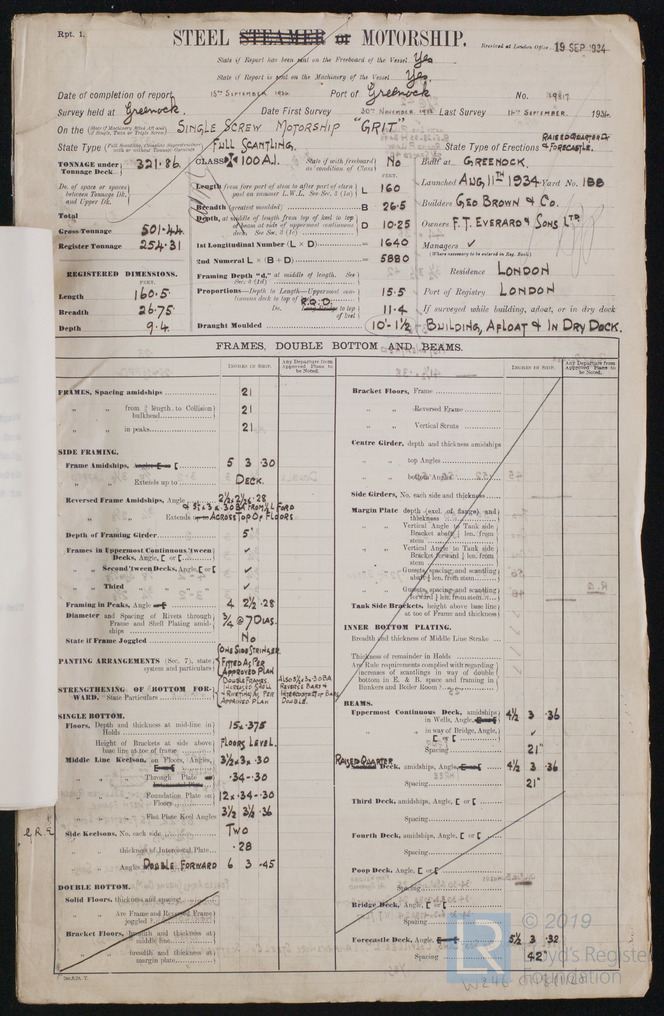 Rpt. 1.
STEEL STEAMER or MOTORSHIP.
Received at London Office 19 SEP 1934
State if Report has been sent on the Freeboard of the Vessel Yes
State if Report is sent on the Machinery of the Vessel Yes.
Date of completion of report 15th September 1934 Port of Greenock No.
Survey held at Greenock. Date First Survey 30th November 1933 Last Survey September 1934
On the SINGLE SCREW MOTORSHIP "GRIT"
State Type FULL SCANTLING. State Type of Erections RAISED QUARTER DK & FORECASTLE.
TONNAGE under Tonnage Deck 321.86
CLASS 100 A.1. State if with freeboard as condition of Class No
Built at GREENOCK.
Launched AUG, 11TH 1934 Yard No. 188
Builders GEO BROWN & CO.
Owners F. T. EVERARD & SONS LTD
Managers ✓
(Where necessary to be entered in Reg. Book)
Residence LONDON
Port of Registry LONDON
If surveyed while building, afloat, or in dry dock
BUILDING, AFLOAT & IN DRY DOCK.
Do. of space or spaces between Tonnage Dk. and Upper Dk.
Total
Gross Tonnage 501.44
Register Tonnage 254.31
REGISTERED DIMENSIONS.
FEET.
Length 160.5
Breadth 26.75
Depth 9.4
Length from fore part of stem to after part of stern post on summer L.W.L. See Sec. 3 (1a) L 160
Breadth (greatest moulded) B 26.5
Depth, at middle of length from top of keel to top of beam at side of uppermost continuous deck. See Sec. 3 (1c) D 10.25
1st Longitudinal Number (L × D) = 1640
2nd Numeral L × (B + D) = 5880
Framing Depth "d," at middle of length. See Sec. 3 (1d)
Proportions—Depth to Length—Uppermost continuous deck to top of keel 15.5
Do. R.Q.D. to top of keel 11.4
Draught Moulded 10'-1½
FRAMES, DOUBLE BOTTOM AND BEAMS.
INCHES IN SHIP.
Any Departure from Approved Plans to be Noted.
INCHES IN SHIP.
Any Departure from Approved Plans to be Noted.
FRAMES, Spacing amidships 21
" " from ⅗ length to Collision bulkhead 21
" " in peaks 21
SIDE FRAMING.
Frame Amidships, Angle 5 3 .30
" " Extends up to DECK.
Reversed Frame Amidships, Angle 2½ x 2½ x .28
" " Extends ACROSS TOP OF FLOORS
Depth of Framing Girder 5"
Frames in Uppermost Continuous 'tween Decks, Angle, [ or [ ✓
" Second 'tween Decks, Angle, [ or [ ✓
" Third " " " ✓
Framing in Peaks, Angle 4 2½ .28
Diameter and Spacing of Rivets through Frame and Shell Plating amidships ¾ @ 7 DIAS.
State if Frame Joggled No
PANTING ARRANGEMENTS (Sec. 7), state system and particulars ONE SIDE STRINGER FITTED AS PER APPROVED PLAN
STRENGTHENING OF BOTTOM FORWARD. State Particulars DOUBLE FRAMES, INCREASED SHELL & RIVETING AS PER APPROVED PLAN
SINGLE BOTTOM.
Floors, Depth and thickness at mid-line in Holds 15 x .375
Height of Brackets at side above base line at toe of frame FLOORS LEVEL.
Middle Line Keelson, on Floors, Angles 3½ x 3 x .30
" " Through Plate .34-.30
" " Foundation Plate on Floors 12 x .34-.30
" " Flat Plate Keel Angles 3½ 3½ .36
Side Keelsons, No. each side TWO
" " thickness of Intercostal Plate .28
" " Angles DOUBLE FORWARD 6 3 .45
DOUBLE BOTTOM.
Solid Floors, thickness and spacing
" Are Frame and Reversed Frame joggled?
Bracket Floors, breadth and thickness at middle line
" breadth and thickness at margin plate
Bracket Floors, Frame
" " Reversed Frame
" " Vertical Struts
Centre Girder, depth and thickness amidships
" " top Angles
" " bottom Angles
Side Girders, No. each side and thickness
Margin Plate depth (excl. of flange), and thickness
" " Vertical Angle to Tank side Bracket abaft ¼ len. from stem
" " Vertical Angle to Tank side Bracket forward ¼ len. from stem
" " Gussets, spacing and scantling abaft ¼ len. from stem
" " Gussets, spacing and scantling forward ¼ len. from stem
Tank Side Brackets, height above base line at toe of Frame and thickness
INNER BOTTOM PLATING.
Breadth and thickness of Middle Line Strake
Thickness of remainder in Holds
Are Rule requirements complied with regarding increases of scantlings in way of double bottom in E. & B. space and framing in Bunkers and Boiler Room?
BEAMS.
Uppermost Continuous Deck, amidships in Wells, Angle 4½ 3 .36
" " in way of Bridge, Angle, [ or [ ✓
Spacing 21"
RAISED QUARTER Deck, amidships, Angle 4½ 3 .36
Spacing 21"
Third Deck, amidships, Angle, [ or [
Spacing
Fourth Deck, amidships, Angle, [ or [
Spacing
Poop Deck, Angle, [ or [
Spacing
Bridge Deck, Angle, [ or [
Spacing
Forecastle Deck, Angle 5½ 3 .32
Spacing 42"
© 2019
LR
Lloyd's Register
Foundation